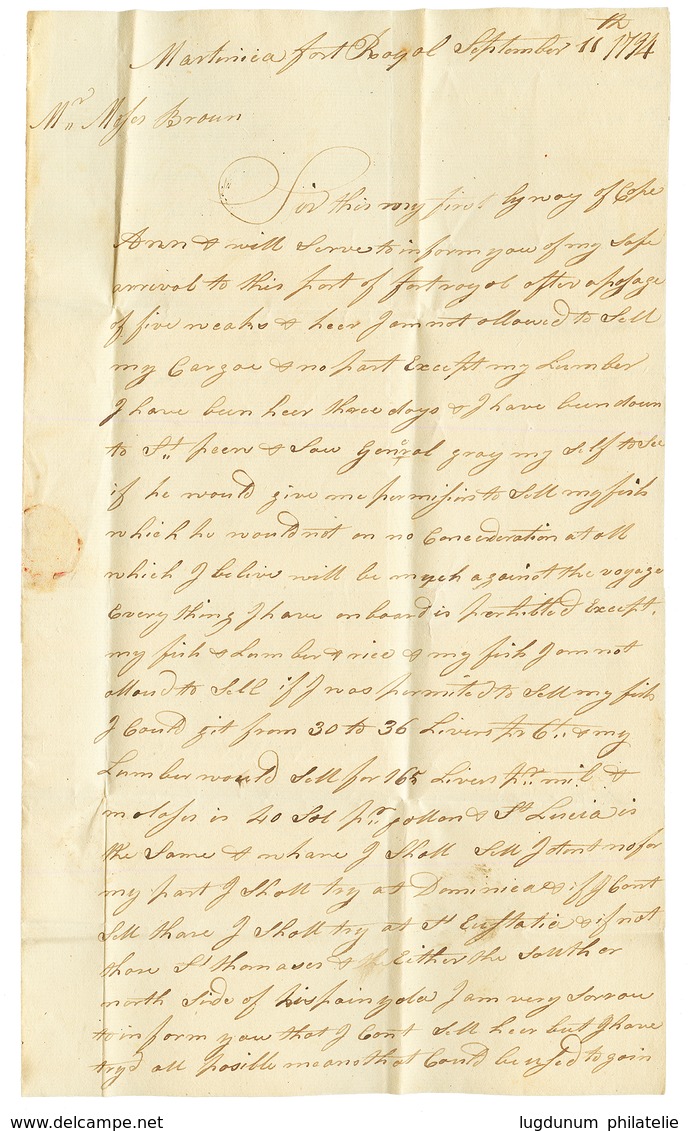 Martinica fort Royal September 11th 1794
Mr Moses Brown
Sir this my first by way of Cape
Ann & will Serve to inform you of my Safe
arrival to this port of fortroyal after a pasage
of five weaks & heer I am not allowed to Sell
my Cargoe & no part Except my Lumber
I have been heer three days & I have been down
to St peers & Saw General gray my Self to See
if he would give me permision to Sell my fish
which he would not on no Concederation at all
which I belive will be much against the voyage
Every thing I have on board is prohibited Except
my fish & Lumber & rice & my fish I am not
allowd to Sell if I was permited to Sell my fish
I Could git from 30 to 36 Livers pr Ct & my
Lumber would Sell for 165 Livers pr mil &
molases is 40 Sol pr gallon & St Lucia is
the Same & whare I Shall Sell I dont no for
my part I Shall try at Dominica & if I Cant
Sell thare I Shall try at St Eustatia & if not
thare St thomases & Either the South or
north Side of hispainyola I am very Sorrow
to inform you that I Cant Sell heer but I have
tryd all posible means that Could be used to gain
www.delcampe.net
lugdunum philatelie